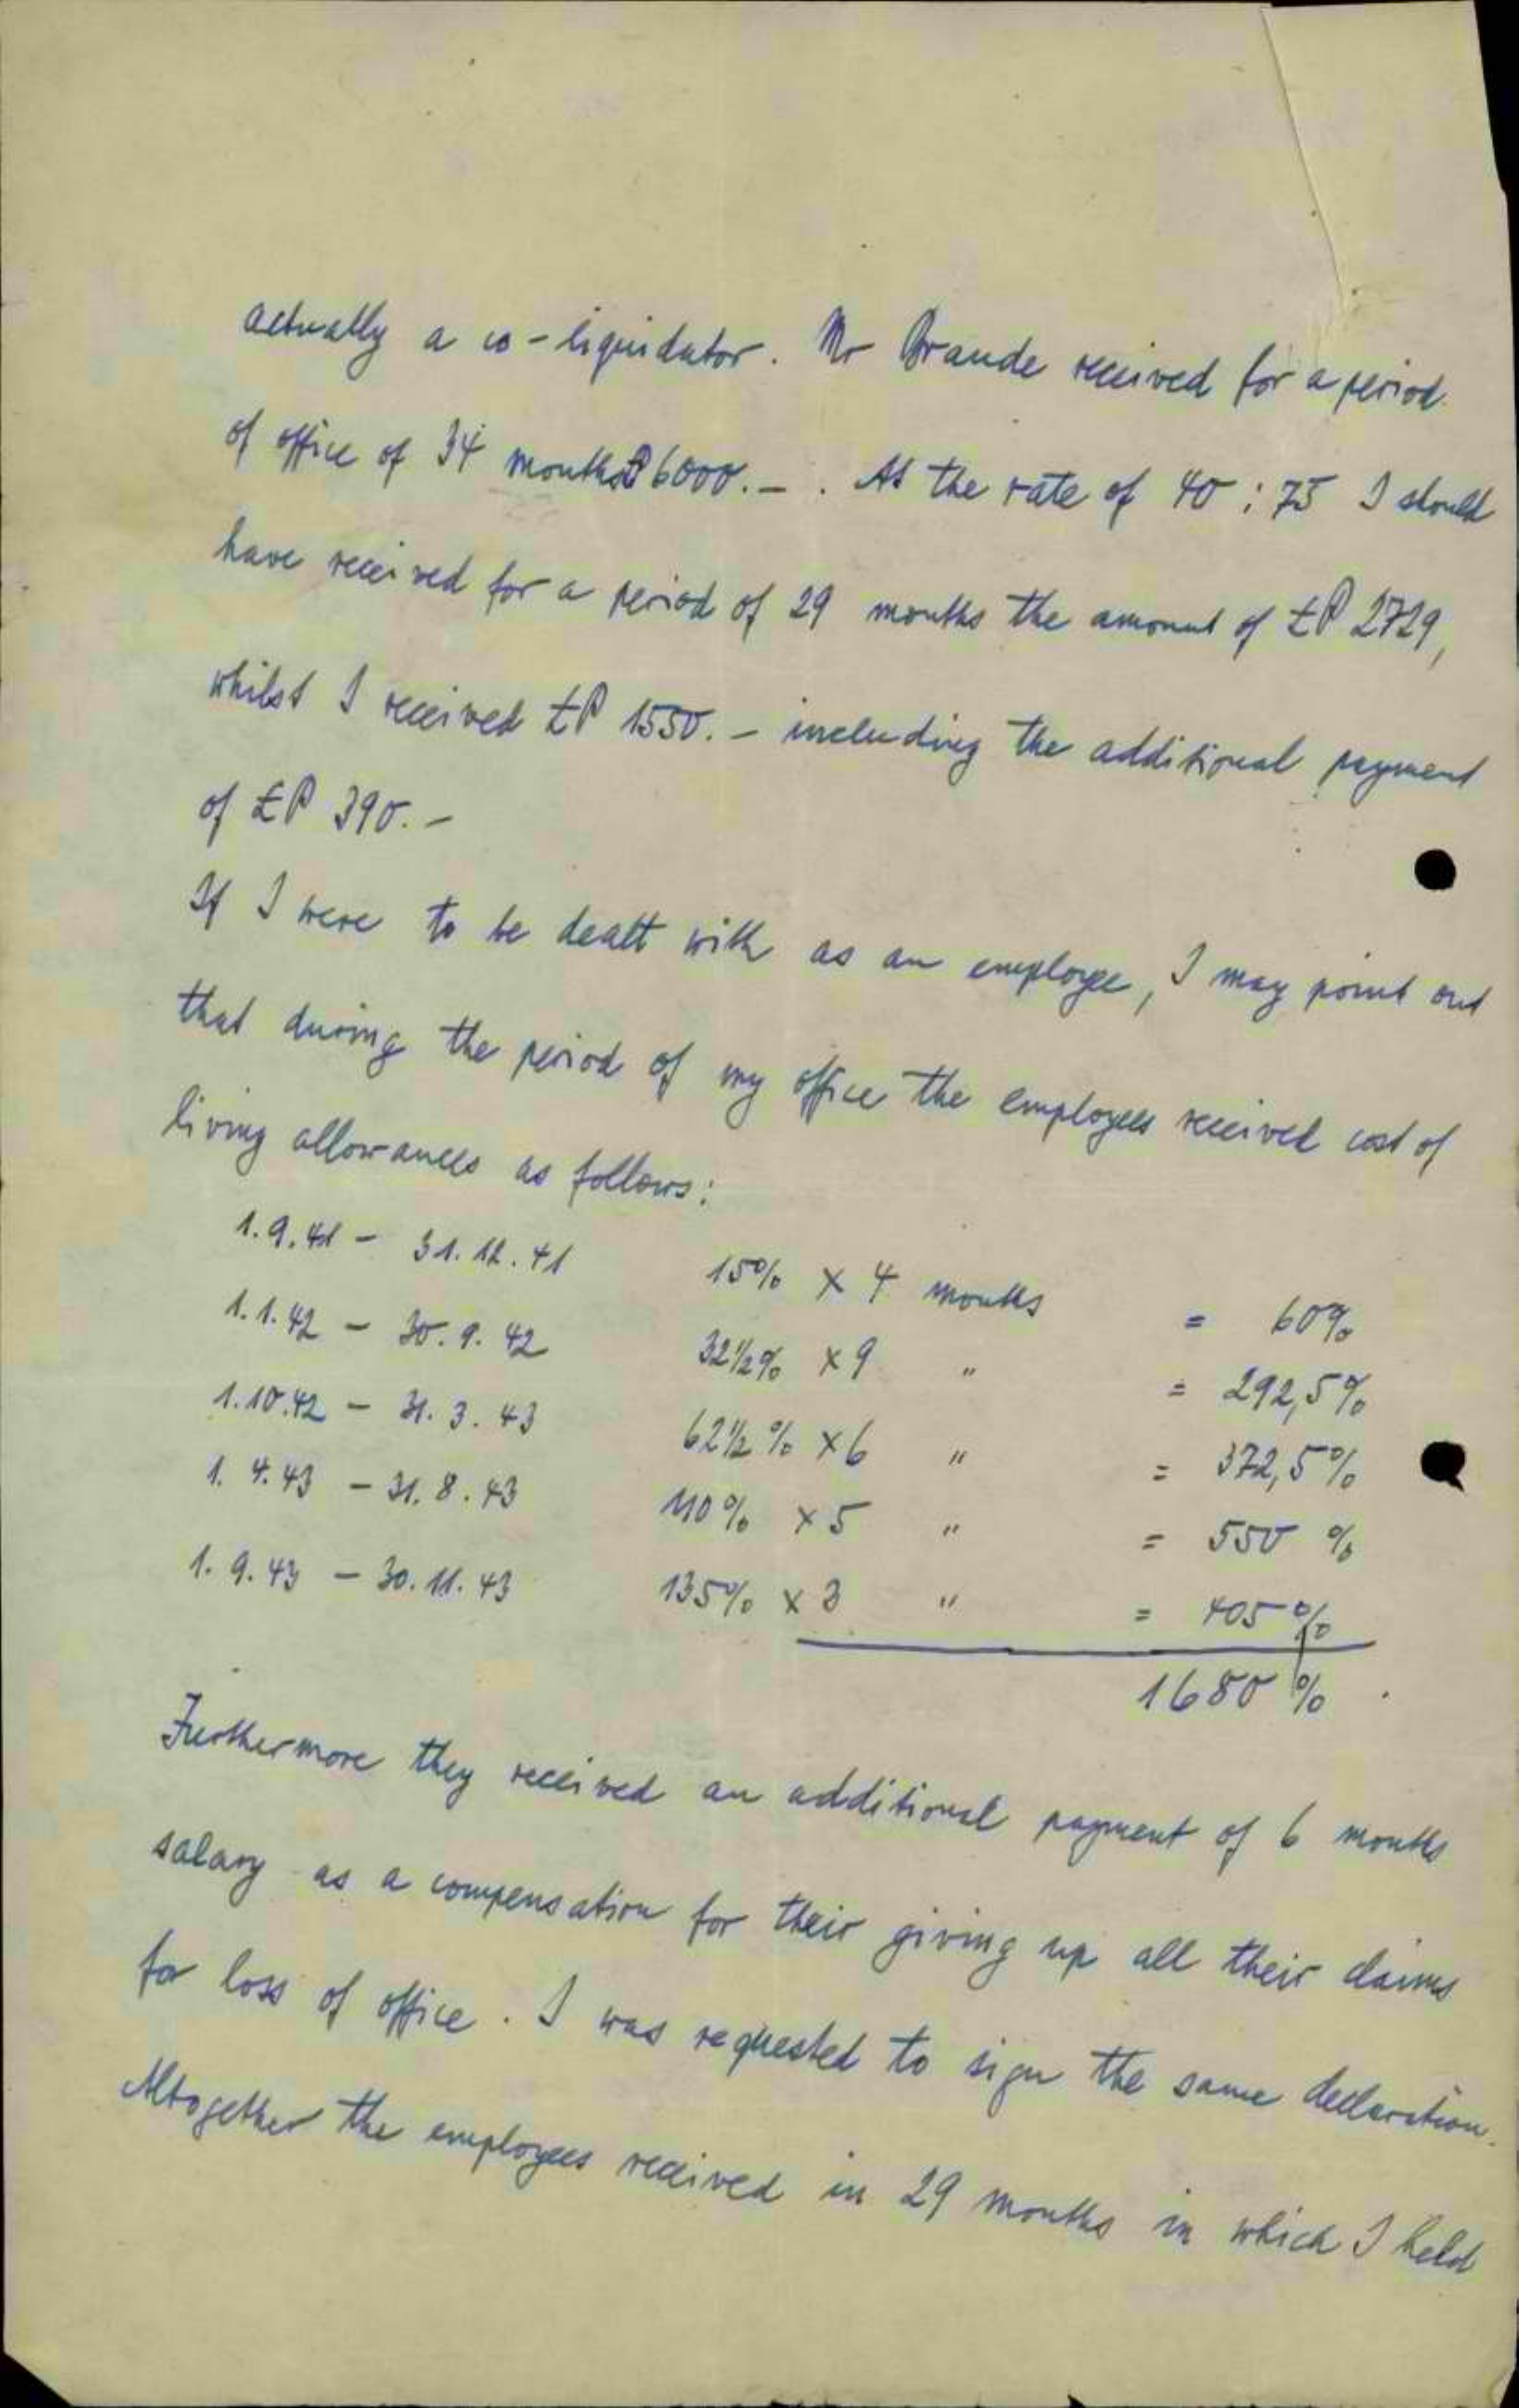 actually a co-liquidator. Mr Braude received for a period
of office of 34 months £P 6000.-. At the rate of 40 : 75 I should
have received for a period of 29 months the amount of £P 2729,
whilst I received £P 1550.- including the additional payment
of £P 390.-
If I were to be dealt with as an employee, I may point out
that during the period of my office the employees received cost of
living allowances as follows:
1.9.41 - 31.12.41 15% x 4 months = 60%
1.1.42 - 30.9.42 32½% x 9 " = 292,5%
1.10.42 - 31.3.43 62½% x 6 " = 372,5%
1.4.43 - 31.8.43 110% x 5 " = 550 %
1.9.43 - 30.11.43 135% x 3 " = 405%
1680 %
Furthermore they received an additional payment of 6 months
salary as a compensation for their giving up all their claims
for loss of office. I was requested to sign the same declaration.
Altogether the employees received in 29 months in which I held